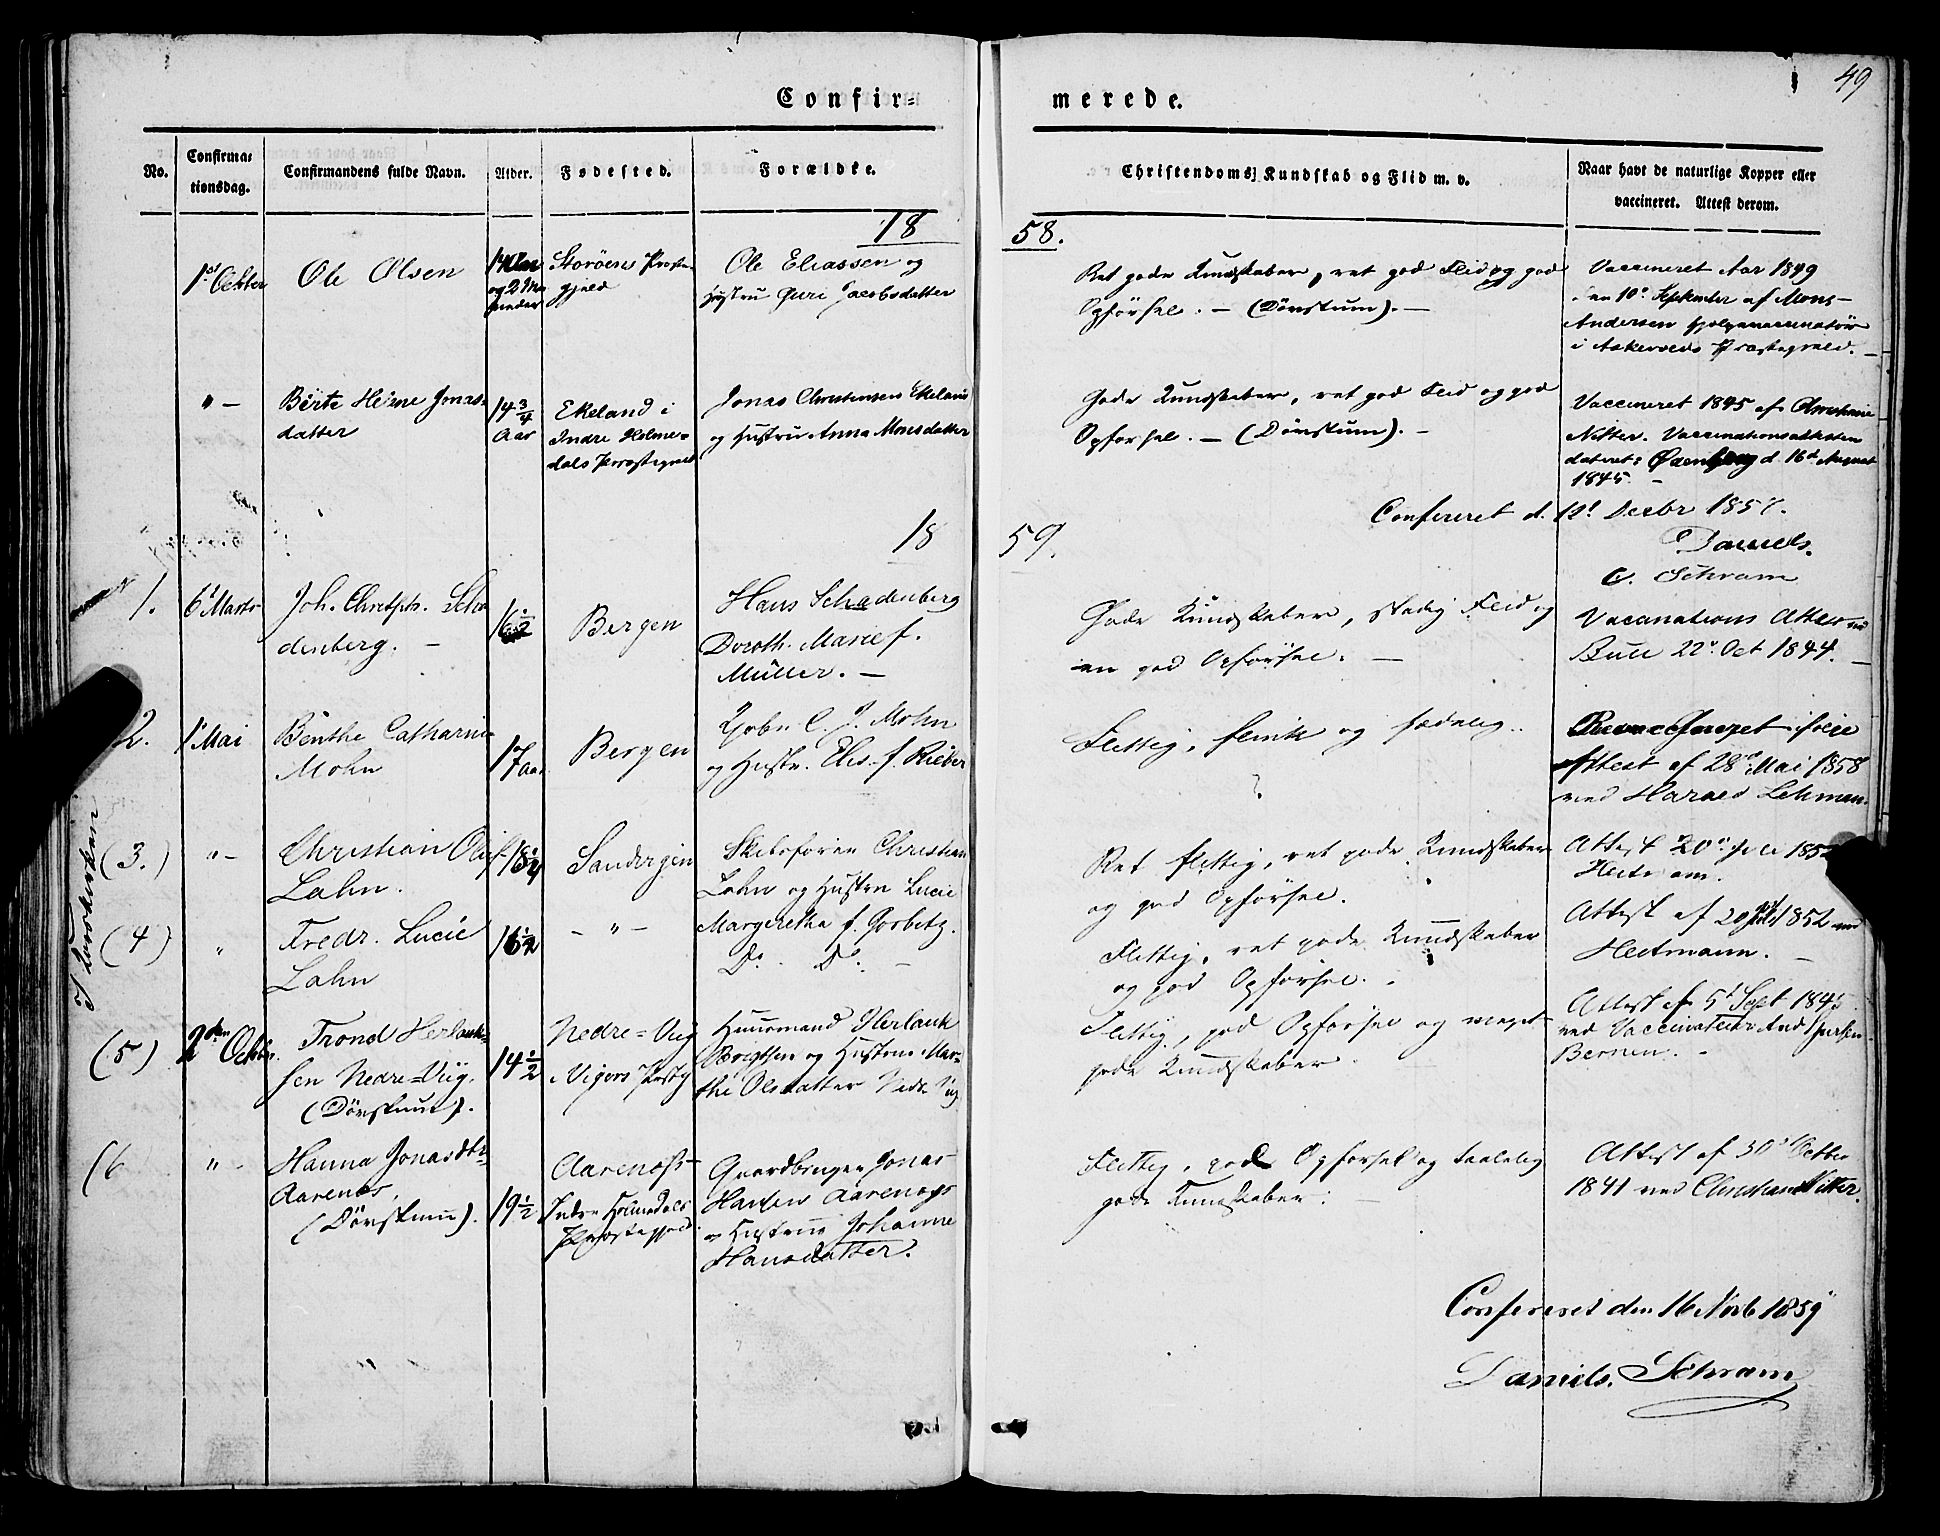 49
Confir= merede.
No.
Confirma=
tionsdag.
Confirmandens fulde Navn.
Alder.
Fødested.
Forældre.
Christendoms Kundskab og Flid m. v.
Naar havt de naturlige Kopper eller
vaccineret. Attest derom.
18 58.
1st Octber
Ole Olsen
og 2 Ma
neder
Storöens Præste
gjeld
Ole Eliassen og
Hustru Guri Jacobsdatter
Ret gode Kundskaber, ret god Flid og god
Opførsel. – (Døvstum). –
Vaccineret Aar 1849
den 10d September af Mons
Andersen Hjelpevaccinatör
i Askevolds Præstegjeld. –
" –
Birte Jonas=
datter
14 3/4
Aar
Ekeland i
Indre Holme=
dals Præstegjeld
Jonas Christensen Ekeland
og Hustru Anna Monsdatter
Gode Kundskaber, ret god Flid og god
Opførsel. – (Døvstum). –
Vaccineret 1845 af Christian
Nitter. Vaccinationsattesten
dateret d. 16d August
1845. –
Confereret d. 12t Decbr 1858.
Daniels.
C. Schram
18 59.
1.
6t Marts
Joh. Christph. Scha
denberg. –
16 1/2
Bergen
Hans Schadenberg
Doroth. Marie f.
Müller. –
Gode Kundskaber, stadig Flid og
en god Opførsel. –
Vaccinations Attest ved
Bull 22d Oct 1844. –
2.
1t Mai
Benthe Catharine
Mohn
17 Aar
Bergen
Kjøbm C. J. Mohn
og Hustr. Elis. f. Rieber
Flittig, flink og sædelig.
?
Attest af 28de Mai 1858
ved Harald Lehman.
I Korskirken
(3.)
" –
Christian Oluf
Lahn.
Sandvigen
Skibsfører Christian
Lahn og Hustru Lucie
Margeretha f. Gorbitz.
Ret flittig, ret gode Kundskaber
og god Opførsel.
Attest 20d Juli 1852
(4)
"
Fredr. Lucie
Lahn
16 1/2
– " –
Do. Do. –
Flittig, ret gode Kundskaber
og god Opførsel.
Attest af 20d Juli 1852 ved
Heitmann. –
(5)
2den Octbr.
Trond Herlauk=
sen Nedre=Viig.
(Døvstum).
14 1/2
Nedre=Viig
Vigørs Præstg
Huusmand Herlauk
Brigtsen og Hustru Mar=
the Olsdatter Nedr. Vig
Flittig, god Opførsel og meget
gode Kundskaber
Attest af 5t Sept 1845
ved Vaccinateur And.
(6
" –
Hanna Jonasdtr
Aarenæs.
(Døvstum).
19 1/2
Aarenæs –
Indre Holmedals
Præstegjeld
Gaardbruger Jonas
Hansen Aarenæs
og Hustru Johanne
Hansdatter.
Flittig, god Opførsel og taalelig
gode Kundskaber. –
Attest af 30d Octber
1841 ved Christian Nitter.
Confereret den 16 Novb 1859
Daniels. Schram